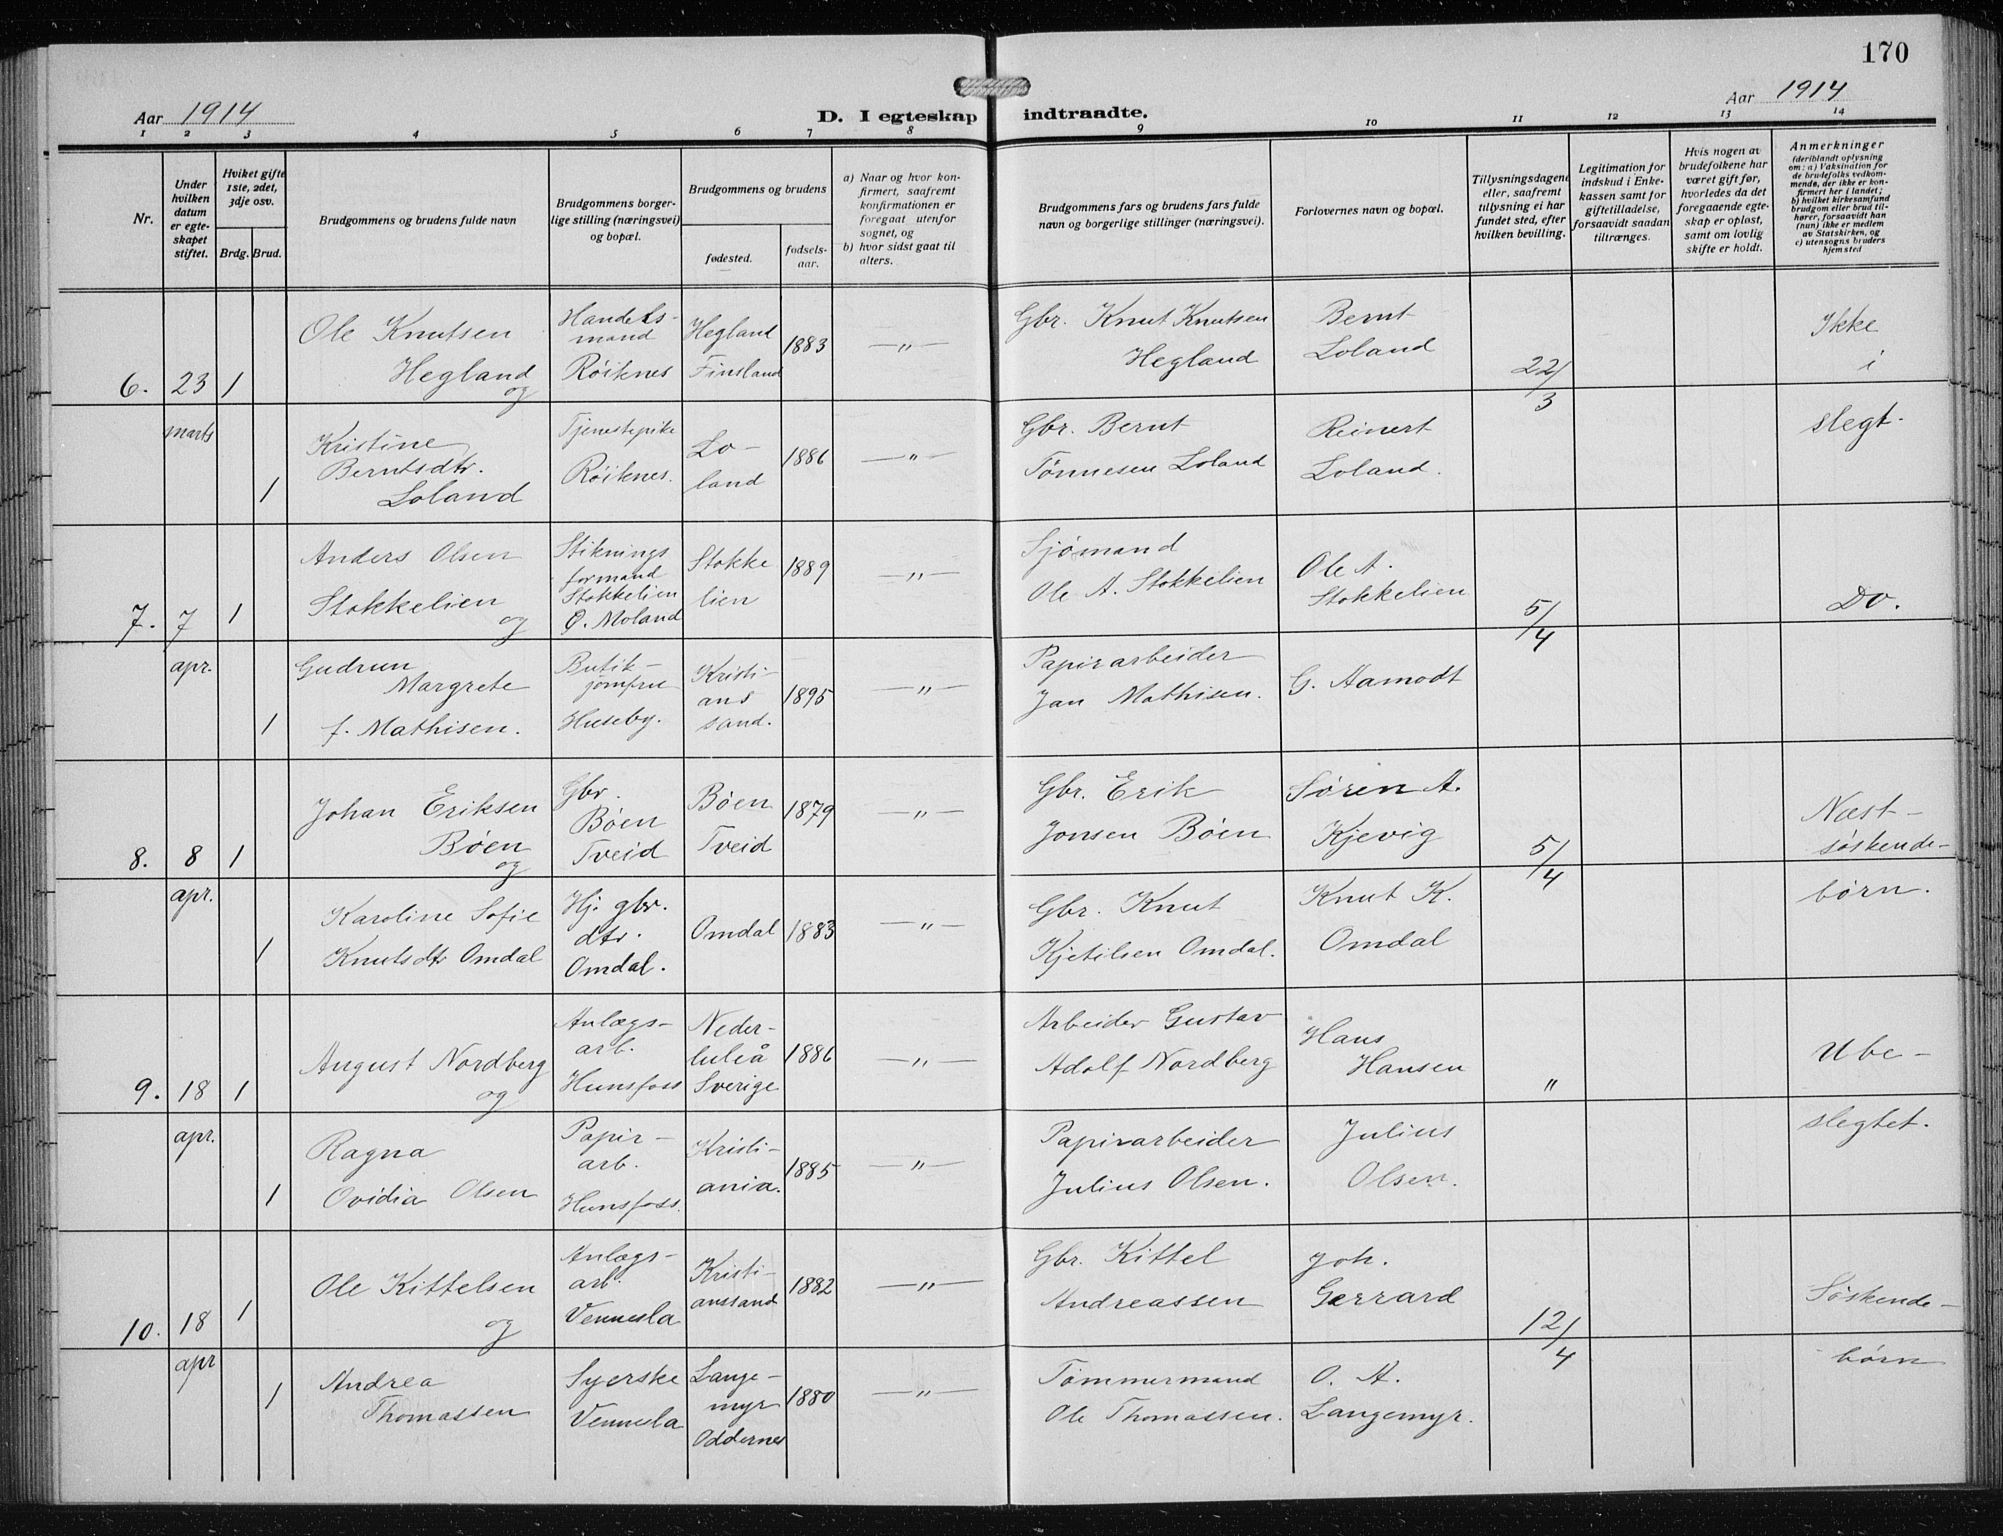 170
Aar 1914
D. I egteskap indtraadte.
Aar 1914
1 2 3 4 5 6 7 8 9 10 11 12 13 14
Nr.
Under hvilken datum er egteskapet stiftet.
Hviket gifte 1ste, 2det, 3dje osv.
Brdg. Brud.
Brudgommens og brudens fulde navn
Brudgommens borgerlige stilling (næringsvei) og bopæl.
Brudgommens og brudens
fødested.
fødselsaar.
a) Naar og hvor konfirmert, saafremt konfirmationen er foregaat utenfor sognet, og
b) hvor sidst gaat til alters.
Brudgommens fars og brudens fars fulde navn og borgerlige stillinger (næringsvei).
Forlovernes navn og bopæl.
Tillysningsdagene eller, saafremt tillysning ei har fundet sted, efter hvilken bevilling.
Legitimation for indskud i Enkekassen samt for giftetilladelse, forsaavidt saadan tiltrænges.
Hvis nogen av brudefolkene har været gift før, hvorledes da det foregaaende egteskap er opløst, samt om lovlig skifte er holdt.
Anmerkninger
(deriblandt oplysning om: a) Vaksination for de brudefolks vedkommende, der ikke er konfirmert her i landet; b) hvilket kirkesamfund brudgom eller brud tilhører, forsaavidt han (hun) ikke er medlem av Statskirken, og c) utensogns bruders hjemsted
6. 23 marts 1
Ole Knutsen
Hegland
og
Handels-
mand
Røiknes
Hegland
Finsland
1883
—"—
Gbr. Knut Knutsen
Hegland
Bernt
Loland
22/3
Ikke
i
slegt.
1
Kristine
Berntsdtr.
Loland
Tjenestepike
Røiknes.
Lo-
land
1886
—"—
Gbr. Bernt
Tønnesen Loland
Reinert
Loland.
7. 7 apr. 1
Anders Olsen
Stokkelien
og
Stiknings
formand
Stokkelien
Ø. Moland
Stokke
lien
1889
—"—
Sjømand
Ole A. Stokkelien
Ole A.
Stokkelien
5/4
Do.
1
Gudrun
Margrete
f. Mathisen.
Butik-
jomfru
Huseby.
Kristi-
ans
sand.
1895
—"—
Papirarbeider
Jan Mathisen.
G. Aamodt
8. 8 apr. 1
Johan Eriksen
Bøen
og
Gbr.
Bøen
Tveid
Bøen
Tveid
1879
—"—
Gbr. Erik
Jonsen Bøen
Søren A.
Kjevig
5/4
Næst-
søskende-
børn.
1
Karoline Sofie
Knutsdtr Omdal
Hj. gbr.
dtr.
Omdal.
Omdal
1883
—"—
Gbr. Knut
Kjetilsen Omdal.
Knut K.
Omdal
9. 18 apr. 1
August Nordberg
og
Anlægs-
arb.
Hunsfoss
Neder-
luleå
Sverige
1886
—"—
Arbeider Gustav
Adolf Nordberg
Hans
Hansen
"
Ube-
slegtet.
1
Ragna
Ovidia Olsen
Papir-
arb.
Hunsfoss.
Kristi-
ania.
1885
—"—
Papirarbeider
Julius Olsen.
Julius
Olsen.
10. 18 apr 1
Ole Kittelsen
og
Anlægs-
arb.
Vennesla
Kristi-
anssand
1882
—"—
Gbr. Kittel
Andreassen
Joh.
Gerrard
12/4
Søskende-
børn
1
Andrea
Thomassen
Syerske
Vennesla
Lange-
myr
Oddernes
1880
—"—
Tømmermand
Ole Thomassen.
O. A.
Langemyr.